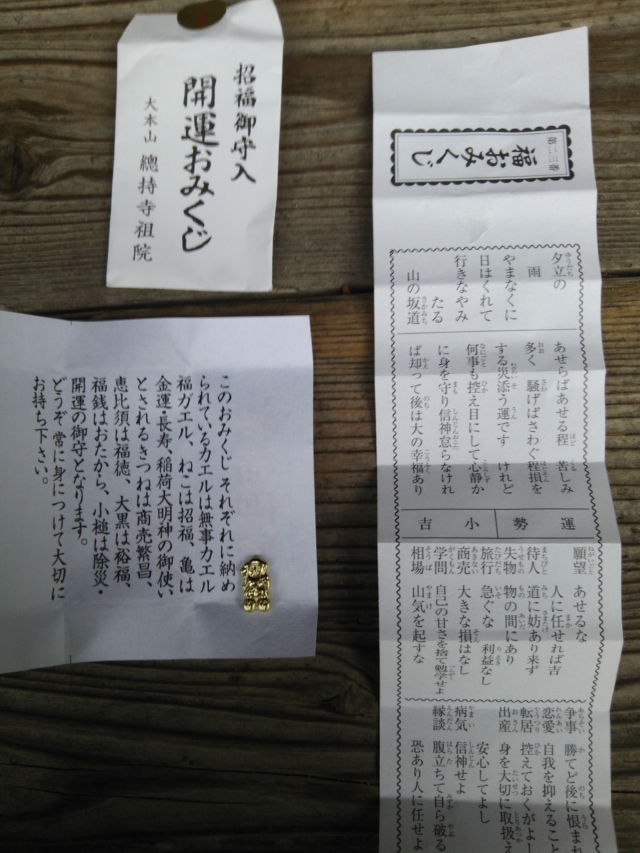 招福御守入
開運おみくじ
大本山 總持寺祖院
このおみくじ それぞれに納め
られているカエルは無事カエル
福ガエル、ねこは招福、亀は
金運・長寿、稲荷大明神の御使い
とされるきつねは商売繁昌、
恵比須は福徳、大黒は裕福、
福銭はおたから、小槌は除災・
開運の御守となります。
どうぞ 常に身につけて大切に
お持ち下さい。
福おみくじ
夕立の
雨
やまなくに
日はくれて
行きなやみ
たる
山の坂道
あせらばあせる程 苦しみ
多く 騒げばさわぐ程損を
する災添う運です けれど
何事も控え目にして心静か
に身を守り信神怠らなけれ
ば却って後は大の幸福あり
運勢 小吉
願望 あせるな
人に任せれば吉
待人 道に妨あり来ず
失物 物の間にあり
旅行 急ぐな 利益なし
商売 大きな損はなし
学問 自己の甘さを捨て勉学せよ
相場 山気を起すな
争事 勝てど後に恨まれ
恋愛 自我を抑えること
転居 控えておくがよし
出産 身を大切に取扱え
安心してよし
病気 信神せよ
縁談 腹立ちて自ら破る
恐あり人に任せよ